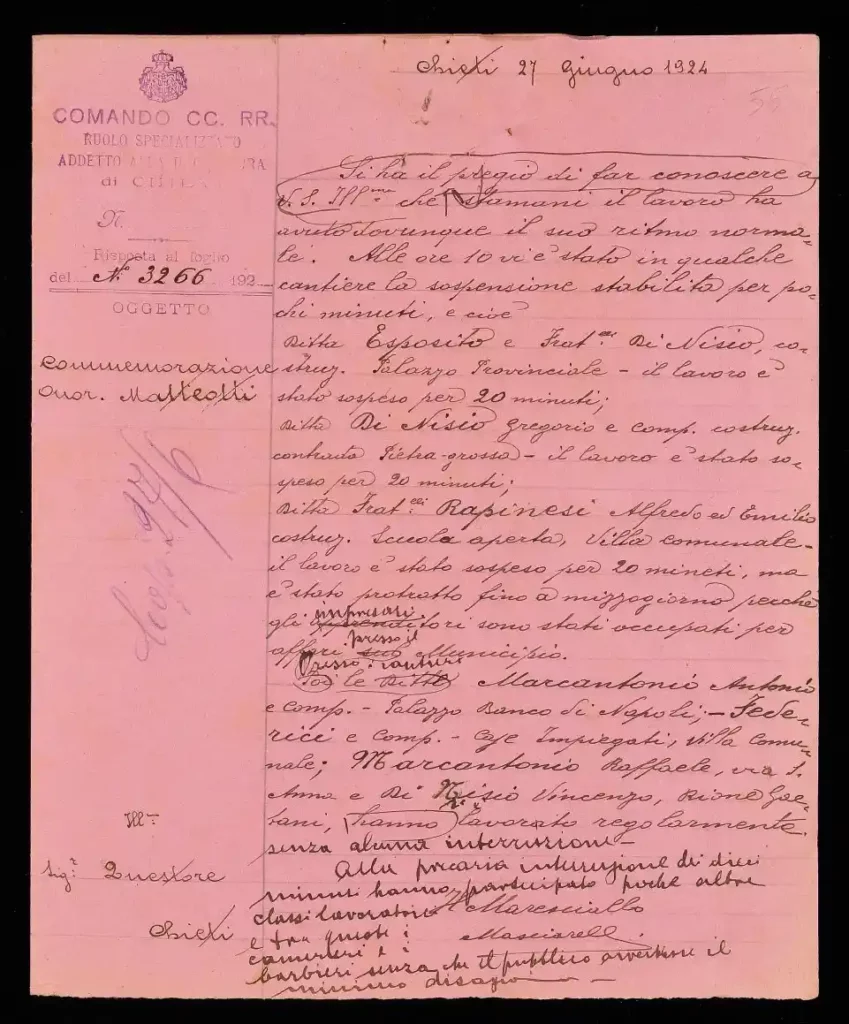 Chieti 27 Giugno 1924
55
COMANDO CC. RR.
RUOLO SPECIALIZZATO
ADDETTO ALLA
di CHIETI
N.
Risposta al foglio
del N° 3266 192
OGGETTO
Commemorazione
Onor. Matteotti
Si ha il pregio di far conoscere a
V. S. Ill.ma che stamani il lavoro ha
avuto dovunque il suo ritmo norma-
le. Alle ore 10 vi è stato in qualche
cantiere la sospensione stabilita per po-
chi minuti, e cioè
Ditta Esposito e Frat.elli Di Nisio, co-
struz. Palazzo Provinciale - il lavoro è
stato sospeso per 20 minuti;
Ditta Di Nisio Gregorio e comp. costruz.
contrada Pietra-grossa - il lavoro è stato so-
speso per 20 minuti;
Ditta Frat.elli Rapinesi Alfredo ed Emilio
costruz. Scuola aperta, Villa comunale -
il lavoro è stato sospeso per 20 mineti, ma
è stato protratto fino a mizzogiorno perchè
impresari
gli imprenditori sono stati occupati per
presso il
affari sul Municipio.
Presso i cantieri
Poi le Ditte Marcantonio Antonio
e comp. - Palazzo Banco di Napoli; - Fede-
rici e comp. - Case Impiegati, villa Comu-
nale; Marcantonio Raffaele, via S.
Anna e Di Nisio Vincenzo, Rione Gae-
tani, hanno si è lavorato regolarmente.
senza alcuna interruzione -
Alla precaria interruzione di dieci
minuti hanno partecipato poche altre
classi lavoratrici
Il Maresciallo
e tra queste i
Masciarelli
camerieri e i
barbieri senza che il pubblico avvertisse il
minimo disagio -
Ill.mo
Sig.r Questore
Chieti